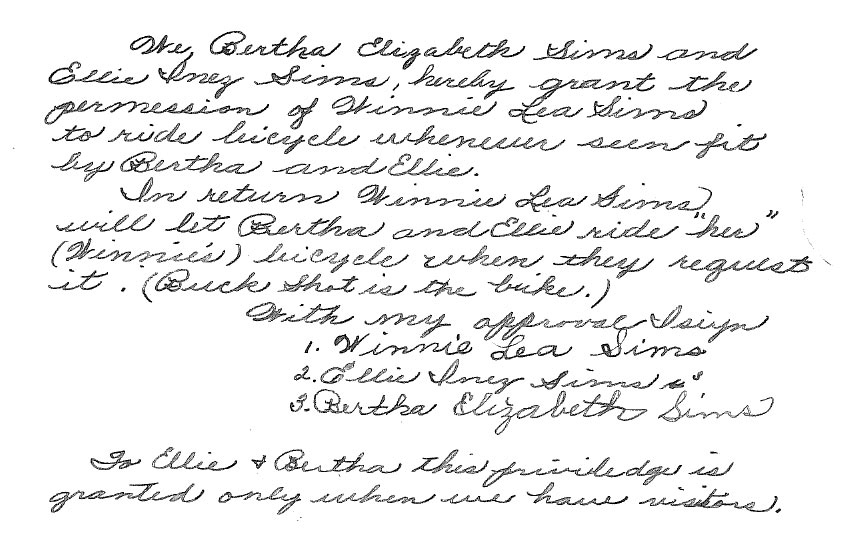 We, Bertha Elizabeth Sims and
Ellie Inez Sims, hereby grant the
permession of Winnie Lea Sims
to ride bicycle whenever seen fit
by Bertha and Ellie.
In return Winnie Lea Sims
will let Bertha and Ellie ride "her"
(Winnie's) bicycle when they request
it. (Buck Shot is the bike.)
With my approval I sign
1. Winnie Lea Sims
2. Ellie Inez Sims
3. Bertha Elizabeth Sims
To Ellie & Bertha this priviledge is
granted only when we have visitors.